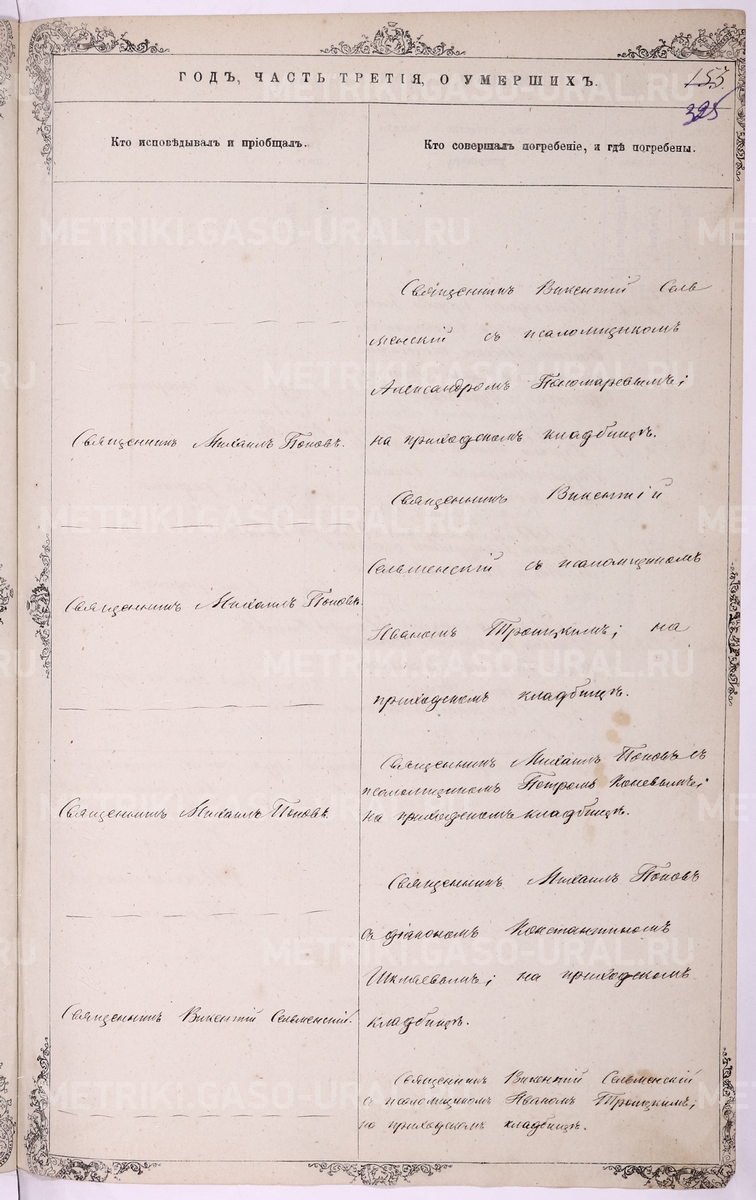 ГОДЪ, ЧАСТЬ ТРЕТІЯ, О УМЕРШИХЪ.
155.
325
Кто исповѣдывалъ и пріобщалъ.
Кто совершалъ погребеніе, и гдѣ погребены.
Священникъ Викентій Сель
менскій съ псаломщикомъ
Александромъ Пономаревымъ;
на приходскомъ кладбищѣ.
Священникъ Михаилъ Поповъ.
Священникъ Викентій
Сельменскій съ псаломщикомъ
Иваномъ Троицкимъ; на
приходскомъ кладбищѣ.
Священникъ Михаилъ Поповъ.
Священникъ Михаилъ Поповъ съ
псаломщикомъ Петромъ
на приходскомъ кладбищѣ.
Священникъ Михаилъ Поповъ.
Священникъ Михаилъ Поповъ
съ діакономъ Константиномъ
Шкляевымъ; на приходскомъ
кладбищѣ.
Священникъ Викентій Сельменскій.
Священникъ Викентій Сельменскій
съ псаломщикомъ Иваномъ Троицкимъ;
на приходскомъ кладбищѣ.
METRIKI.GASO-URAL.RU